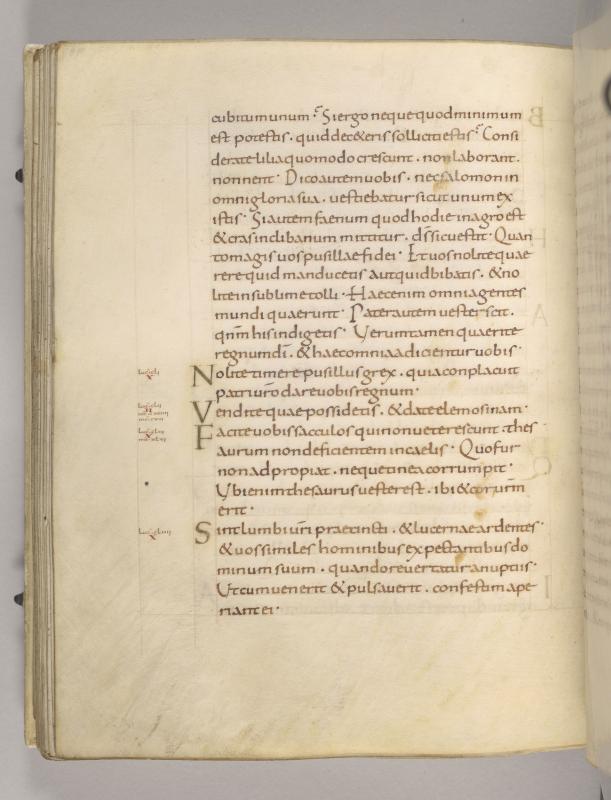 cubitum unum. Si ergo neque quod minimum
est potestis. quid de ceteris solliciti estis. Consi
derate lilia quomodo crescunt. non laborant.
non nent. Dico autem uobis. nec salomon in
omni gloria sua. uestiebatur sicut unum ex
istis. Si autem faenum quod hodie in agro est
& cras in clibanum mittitur. d̄s sic uestit. Quan
to magis uos pusillae fidei. Et uos nolite quae
rere quid manducetis aut quid bibatis. & no
lite in sublime tolli. Haec enim omnia gentes
mundi quaerunt. Pater autem uester scit.
qnm̄ his indigetis. Uerumtamen quaerite
regnum dī. & haec omnia adicientur uobis.
Nolite timere pusillus grex. quia conplacuit
patri uro dare uobis regnum.
Vendite quae possidetis. & date elemosinam.
Facite uobis sacculos qui non ueterescunt. thes
aurum non deficientem in caelis. Quo fur
non adpropiat. neque tinea corrumpit.
Ubi enim thesaurus uester est. ibi & cor urm̄
erit.
Sint lumbi uri praecincti. & lucernae ardentes.
& uos similes hominibus expectantibus do
minum suum. quando reuertatur a nuptiis.
Ut cum uenerit & pulsauerit. confestim ape
riant ei.